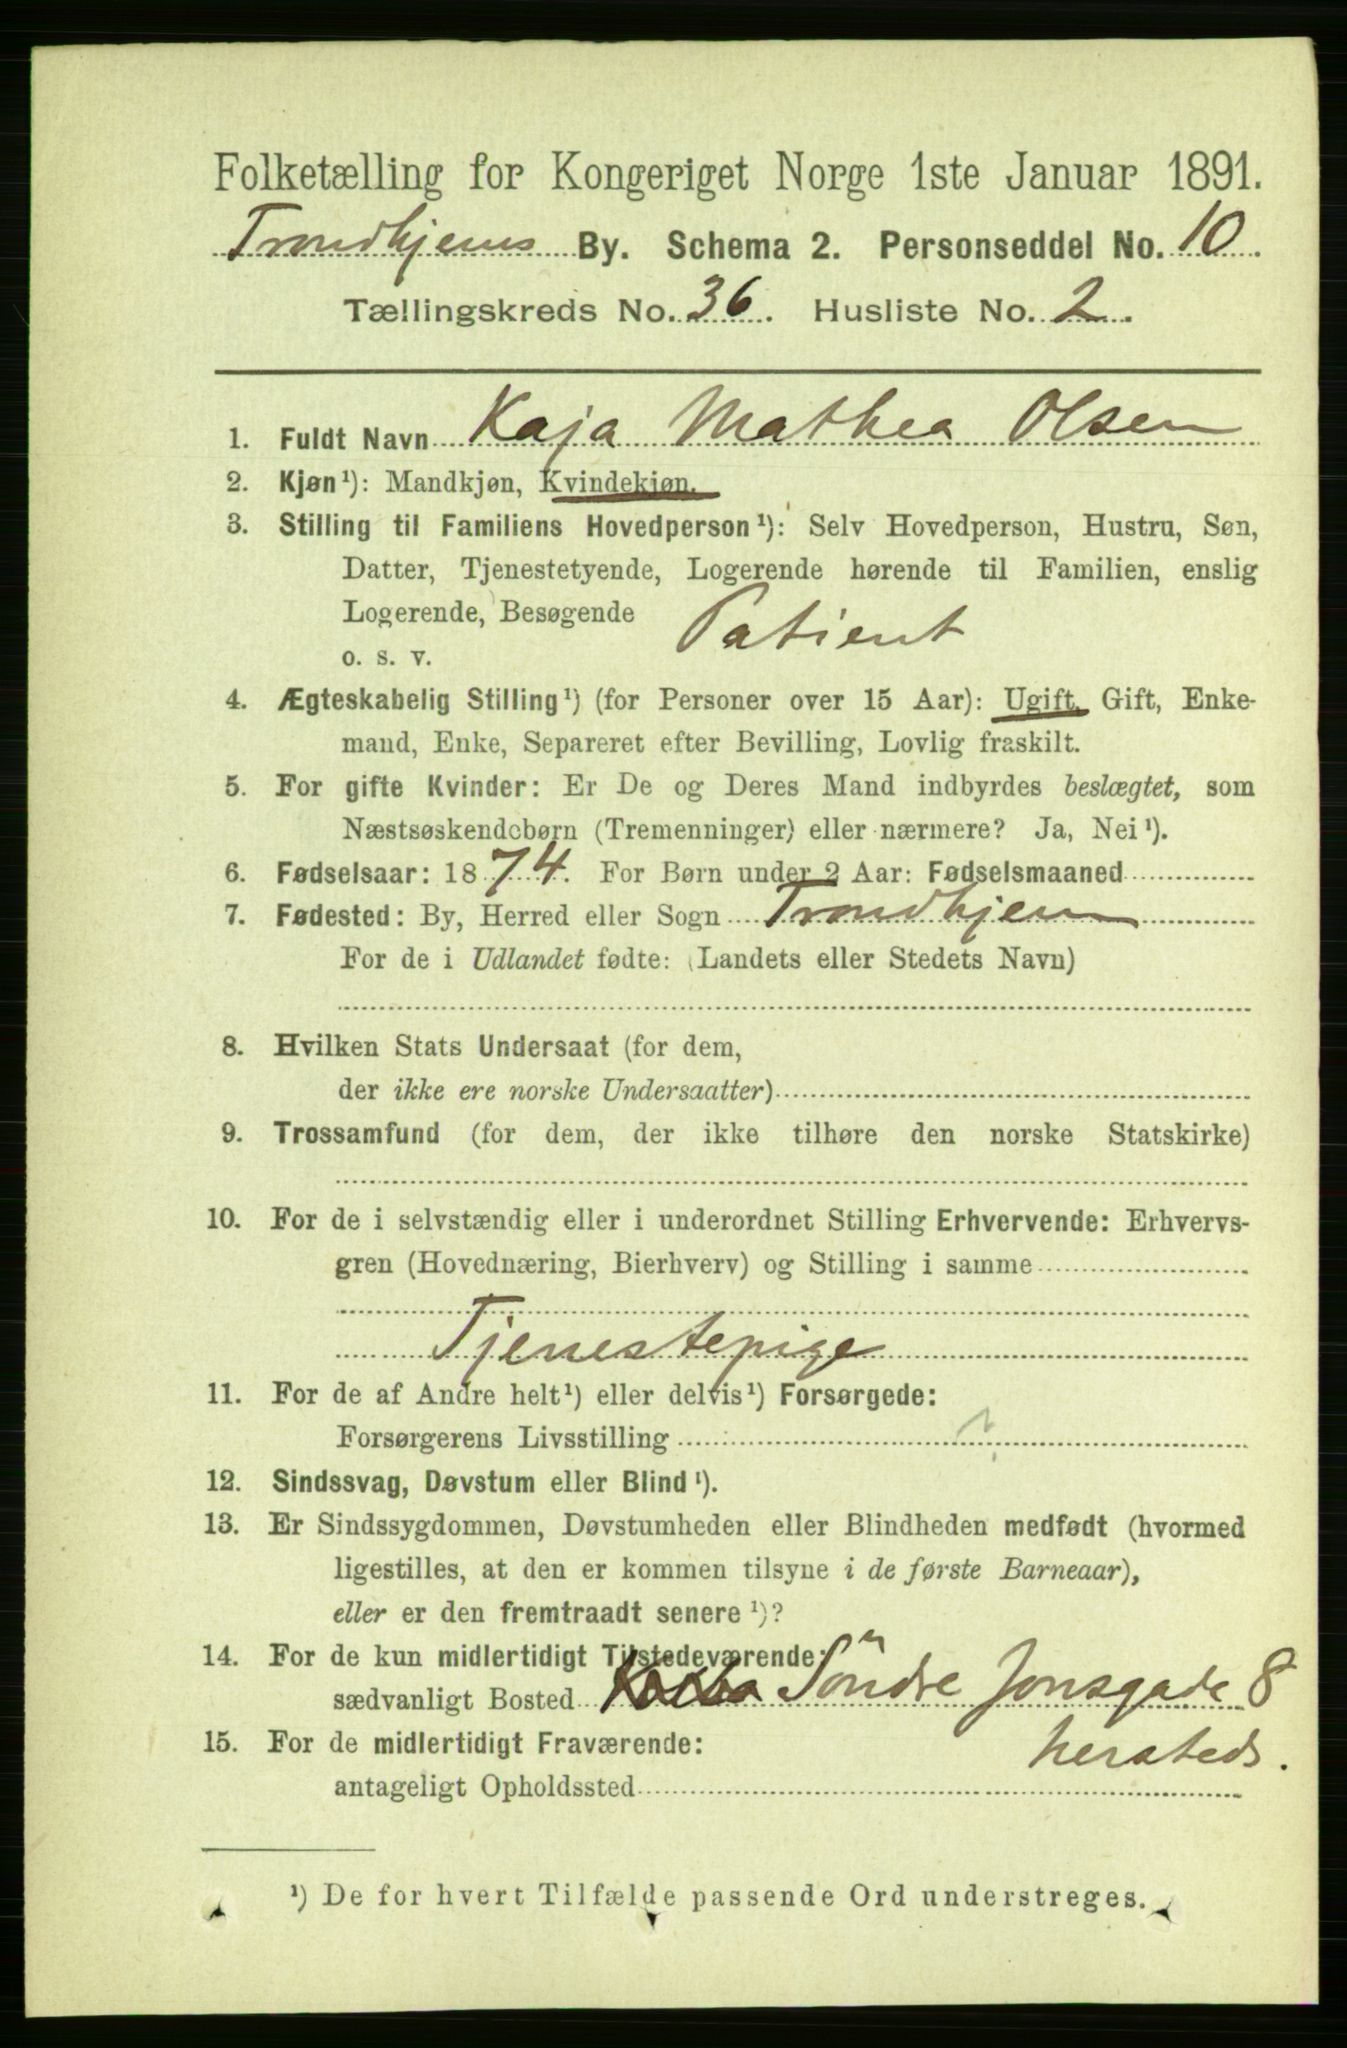 Folketælling for Kongeriget Norge 1ste Januar 1891.
Trondhjems By. Schema 2. Personseddel No. 10.
Tællingskreds No. 36. Husliste No. 2.
1. Fuldt Navn Kaja Mathea Olsen
2. Kjøn¹): Mandkjøn, Kvindekjøn.
3. Stilling til Familiens Hovedperson¹): Selv Hovedperson, Hustru, Søn,
Datter, Tjenestetyende, Logerende hørende til Familien, enslig
Logerende, Besøgende Patient
o. s. v.
4. Ægteskabelig Stilling¹) (for Personer over 15 Aar): Ugift, Gift, Enke-
mand, Enke, Separeret efter Bevilling, Lovlig fraskilt.
5. For gifte Kvinder: Er De og Deres Mand indbyrdes beslægtet, som
Næstsøskendebørn (Tremenninger) eller nærmere? Ja, Nei¹).
6. Fødselsaar: 1874. For Børn under 2 Aar: Fødselsmaaned
7. Fødested: By, Herred eller Sogn Trondhjem
For de i Udlandet fødte: (Landets eller Stedets Navn)
8. Hvilken Stats Undersaat (for dem,
der ikke ere norske Undersaatter)
9. Trossamfund (for dem, der ikke tilhøre den norske Statskirke)
10. For de i selvstændig eller i underordnet Stilling Erhvervende: Erhvervs-
gren (Hovednæring, Bierhverv) og Stilling i samme
Tjenestepige
11. For de af Andre helt¹) eller delvis¹) Forsørgede:
Forsørgerens Livsstilling ?
12. Sindssvag, Døvstum eller Blind¹).
13. Er Sindssygdommen, Døvstumheden eller Blindheden medfødt (hvormed
ligestilles, at den er kommen tilsyne i de første Barneaar),
eller er den fremtraadt senere¹)?
14. For de kun midlertidigt Tilstedeværende:
sædvanligt Bosted Söndre Jonsgade 8
15. For de midlertidigt Fraværende: hersteds.
antageligt Opholdssted
¹) De for hvert Tilfælde passende Ord understreges.